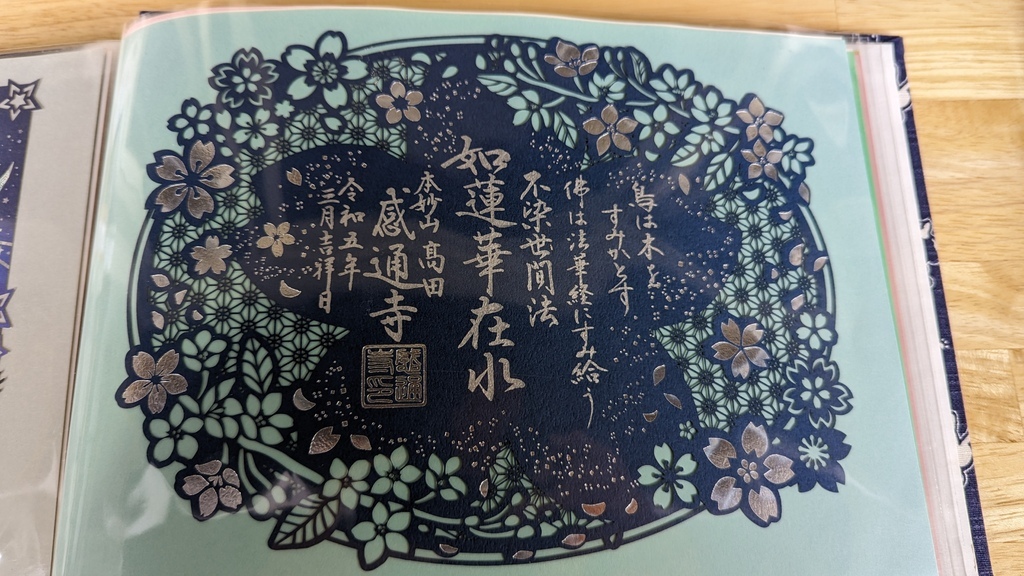 鳥は木を
すみかとす
佛は法華経にすみ給う
不染世間法
如蓮華在水
本妙山 髙田
感通寺
令和五年
三月吉祥日